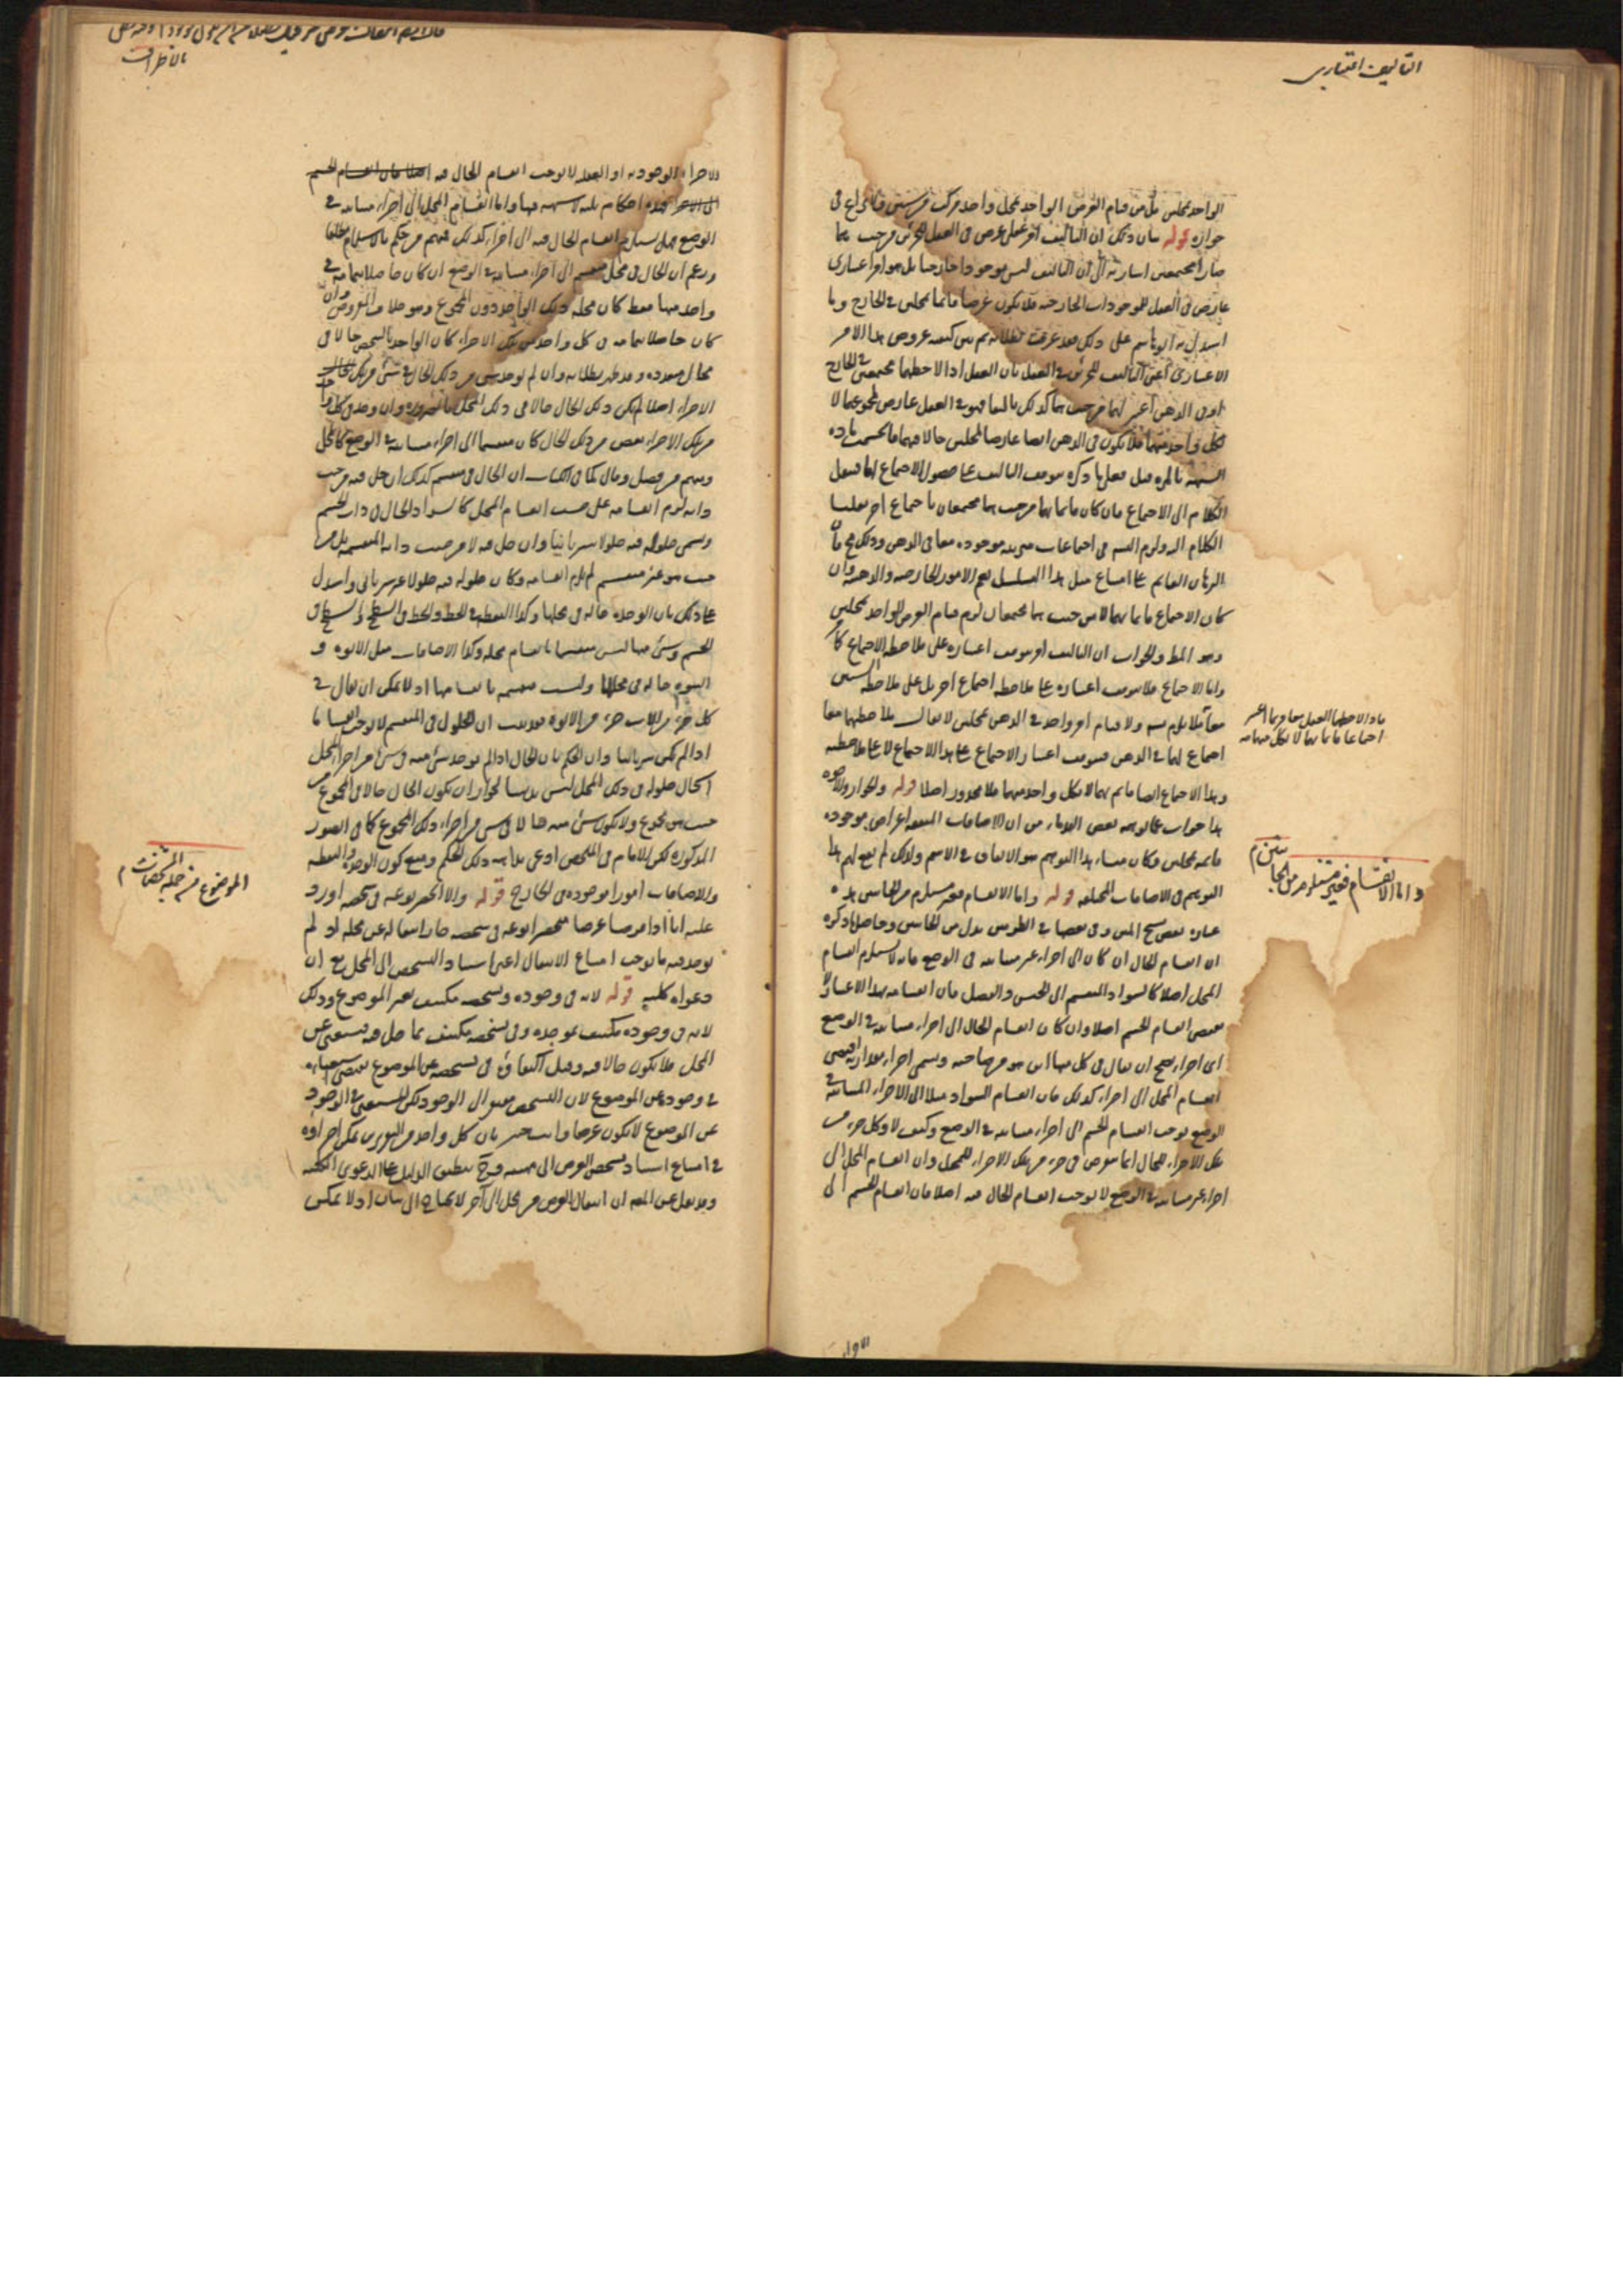 التأليف اعتباري
الواحد بمحلين بل من قيام العرض الواحد بمحل واحد مركب من شيئين ولا نزاع في
جوازه قوله بيان ذلك ان التأليف امر عقلي عرض في العقل للجزئين من حيث هما
صارا مجتمعين اشارة الى ان التأليف ليس موجودا خارجيا بل هو امر اعتباري
عارض في العقل للموجودات الخارجية فلا يكون عرضا قائما بمحلين في الخارج وما
استدل به ابو هاشم على ذلك فقد عرفت بطلانه ثم بين كيفية عروض هذا الامر
الاعتباري اعني التأليف للجزئين في العقل بان العقل اذا لاحظهما مجتمعين في الخارج
او في الذهن اعتبر لهما من حيث هما كذلك تأليفا فهو في العقل عارض لمجموعهما لا
لكل واحد منهما فلا يكون في الذهن ايضا عارضا لمحلين حالا فيهما فانحسمت مادة
الشبهة بالمرة فان قيل فعلى ما ذكره يتوقف التأليف على حصول الاجتماع لهما فننقل
الكلام الى الاجتماع فان كان قائما بهما من حيث هما مجتمعان باجتماع اخر نقلنا
الكلام اليه ولزم التسلسل في اجتماعات مترتبة موجودة معا في الذهن وذلك مح لأن
البرهان القائم على امتناع مثل هذا التسلسل يعم الامور الخارجية والذهنية وان
كان الاجتماع قائما بهما لا من حيث هما مجتمعان لزم قيام العرض الواحد بمحلين
وهو المط والجواب ان التأليف امر يتوقف اعتباره على ملاحظة الاجتماع كما مر
واما الاجتماع فلا يتوقف اعتباره على ملاحظة اجتماع آخر بل على ملاحظة الشيئين
معا فلا يلزم تسلسل ولا قيام امر واحد في الذهن بمحلين لا يقال ملاحظتهما معا
اجتماع لهما في الذهن فيتوقف اعتبار الاجتماع على هذا الاجتماع لا على ملاحظته
وهذا الاجتماع ايضا قائم بهما لا بكل واحد منهما فلا محذور اصلا قوله والجوار والاخوة
هذا جواب عما توهمه بعض القدماء من ان الاضافات المتفقة اعراض موجودة
قائمة بمحلين وكان منشاء هذا التوهم هو الاتفاق في الاسم ولذلك لم يقع لهم هذا
التوهم في الاضافات المختلفة قوله واما الانقسام فغير مستلزم من الجانبين هذه
عبارة بعض نسخ المتن وفي بعضها في الطرفين بدل من الجانبين وحاصل ما ذكره
ان انقسام الحال ان كان الى اجزاء غير متباينة في الوضع فانه لا يستلزم انقسام
المحل اصلا كالسواد المنقسم الى الجنس والفصل فان انقسامه بهذا الاعتبار لا
يقتضي انقسام الجسم اصلا وان كان انقسام الحال الى اجزاء متباينة في الوضع
اي اجزاء يصح ان يقال في كل منها اين هو من صاحبه ويسمى اجزاء مقدارية اقتضى
انقسام المحل الى اجزاء كذلك فان انقسام السواد مثلا الى الاجزاء المتباينة في
الوضع يوجب انقسام الجسم الى اجزاء متباينة في الوضع وكيف لا وكل جزء من
تلك الاجزاء للحال انما يعرض في جزء من تلك الاجزاء للمحل وان انقسام المحل الى
اجزاء غير متباينة في الوضع لا يوجب انقسام الحال فيه اصلا فان انقسام الجسم الى
فاذا لاحظهما العقل معا وربما اعتبر
اجتماعا قائما بهما لا بكل منهما منه
واما الانقسام فغير مستلزم من الجانبين م
بالاطراف
الاجزاء الوجودية او العقلية لا يوجب انقسام الحال فيه اصلا فان انقسام الجسم
الى الاجزاء فهذه احكام ثلثة لا شبهة فيها واما انقسام المحل الى اجزاء متباينة في
الوضع فهل يستلزم انقسام الحال فيه الى اجزاء كذلك فمنهم من حكم بالاستلزام مطلقا
وزعم ان الحال في محل منقسم الى اجزاء متباينة في الوضع ان كان حاصلا بتمامه في
واحد منها فقط كان محله ذلك الواحد دون المجموع وهو خلاف المفروض وان
كان حاصلا بتمامه في كل واحد من تلك الاجزاء كان الواحد بالشخص حالا في
محال متعددة وقد ظهر بطلانه وان لم يوجد شيء من ذلك الحال في شيء من تلك
الاجزاء اصلا لم يكن ذلك الحال حالا في ذلك المحل بالضرورة وان وجد في كل واحد
من تلك الاجزاء بعض من ذلك الحال كان منقسما الى اجزاء متباينة في الوضع كالمحل
ومنهم من فصل وقال كما في الكتاب ان الحال في منقسم كذلك ان حل فيه من حيث
ذاته لزم انقسامه على حسب انقسام المحل كالسواد الحال في ذات الجسم
ويسمى حلوله فيه حلولا سريانيا وان حل فيه لا من حيث ذاته المنقسمة بل من
حيث هو غير منقسم لم يلزم انقسامه وكان حلوله فيه حلولا غير سرياني واستدل
على ذلك بان الوحدة حالة في محلها وكذا النقطة في الخط والخط في السطح والسطح في
الجسم وشيء منها ليس منقسما بانقسام محله وكذا الاضافات مثل الابوة و
البنوة حالة في محلها وليست منقسمة بانقسامها اذ لا يمكن ان يقال في
كل جزء من الاب جزء من الابوة فقد ثبت ان الحلول في المنقسم لا يوجب انقساما
اذا لم يكن سريانيا وان الحكم بان الحال اذا لم يوجد شيء منه في شيء من اجزاء المحل
استحال حلوله في ذلك المحل ليس بديهيا لجواز ان يكون الحال حالا في المجموع من
حيث هو مجموع ولا يكون شيء منه حالا في شيء من اجزاء ذلك المجموع كما في الصور
المذكورة لكن الامام في الملخص ادعى بداهة ذلك الحكم ومنع كون الوحدة والنقطة
والاضافات امورا موجودة في الخارج قوله والا انحصر نوعه في شخصه اورد
عليه انا اذا فرضنا عرضا منحصرا نوعه في شخصه جاز انتقاله عن محله اذ لم
يوجد فيه ما يوجب امتناع الانتقال اعني استناد التشخص الى المحل مع ان
دعواه كلية قوله لانه في وجوده وتشخصه مكتف بغير الموضوع وذلك
لانه في وجوده مكتف بموجده وفي تشخصه مكتف بما حل فيه فيستغني عن
المحل فلا يكون حالا فيه وقيل اكتفاؤه في تشخصه عن الموضوع يقتضي استغناءه
في وجوده عن الموضوع لان التشخص يتوقف الى الوجود لكن المستغني في الوجود
عن الموضوع لا يكون عرضا وانت خبير بان كل واحد من التقريرين يمكن اجراؤه
في امتناع استناد تشخص العرض الى مهيته فح ينطبق الدليل على الدعوى الكلية
وقد نقل عن المص ان انتقال العرض من محل الى آخر لا يحتاج الى بيان اذ لا يمكن
الموضوع من جملة المشخصات م